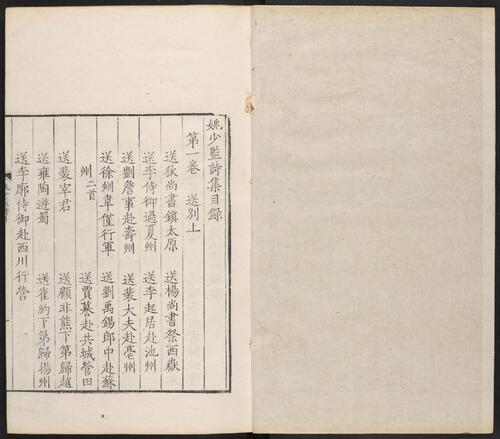 姚少監詩集目錄
第一卷　送別上
送狄尚書鎮太原　送楊尚書祭西嶽
送李侍御過夏州　送李起居赴池州
送劉詹事赴壽州　送裴大夫赴亳州
送徐州韋僅行軍　送劉禹錫郎中赴蘇
州二首　送賈謩赴共城營田
送裴宰君　送顧非熊下第歸越
送雍陶遊蜀　送崔約下第歸揚州
送李廓侍御赴西川行營